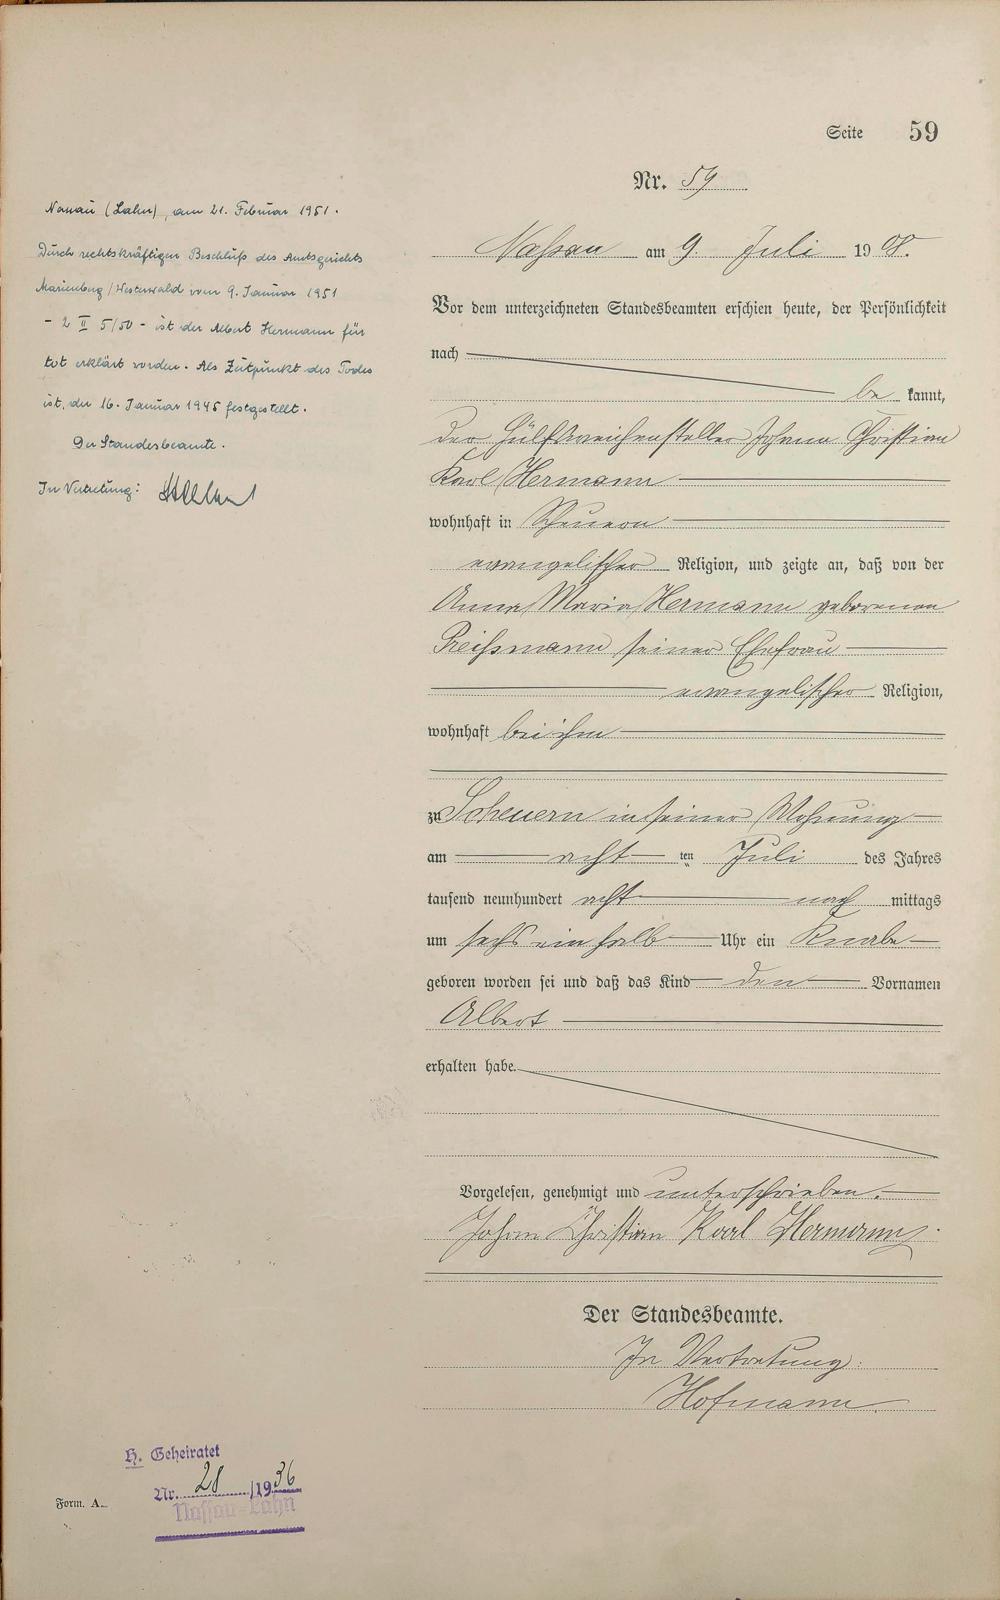 Seite 59
Nr. 59
Nassau (Lahn), am 21. Februar 1951.
Durch rechtskräftigen Beschluß des Amtsgerichts
Marienberg/Westerwald vom 9. Januar 1951
- 2 II 5/50 - ist der Albert Hermann für
tot erklärt worden. Als Zeitpunkt des Todes
ist der 16. Januar 1945 festgestellt.
Der Standesbeamte.
In Vertretung:
Naßau am 9. Juli 1908.
Vor dem unterzeichneten Standesbeamten erschien heute, der Persönlichkeit
nach
be kannt,
der Hülfsweichensteller Johann Christian
Karl Hermann
wohnhaft in Scheuern
evangelischer Religion, und zeigte an, daß von der
Anna Maria Hermann geborenen
Preißmann seiner Ehefrau
evangelischer Religion,
wohnhaft bei ihm
zu Scheuern in seiner Wohnung
am acht ten Juli des Jahres
tausend neunhundert acht nach mittags
um sechs ein halb Uhr ein Knabe
geboren worden sei und daß das Kind den Vornamen
Albert
erhalten habe.
Vorgelesen, genehmigt und unterschrieben.
Johan Christian Karl Hermann
Der Standesbeamte.
In Vertretung:
Hofmann
H. Geheiratet
Nr. 28 /1936
Nassau-Lahn
Form. A.